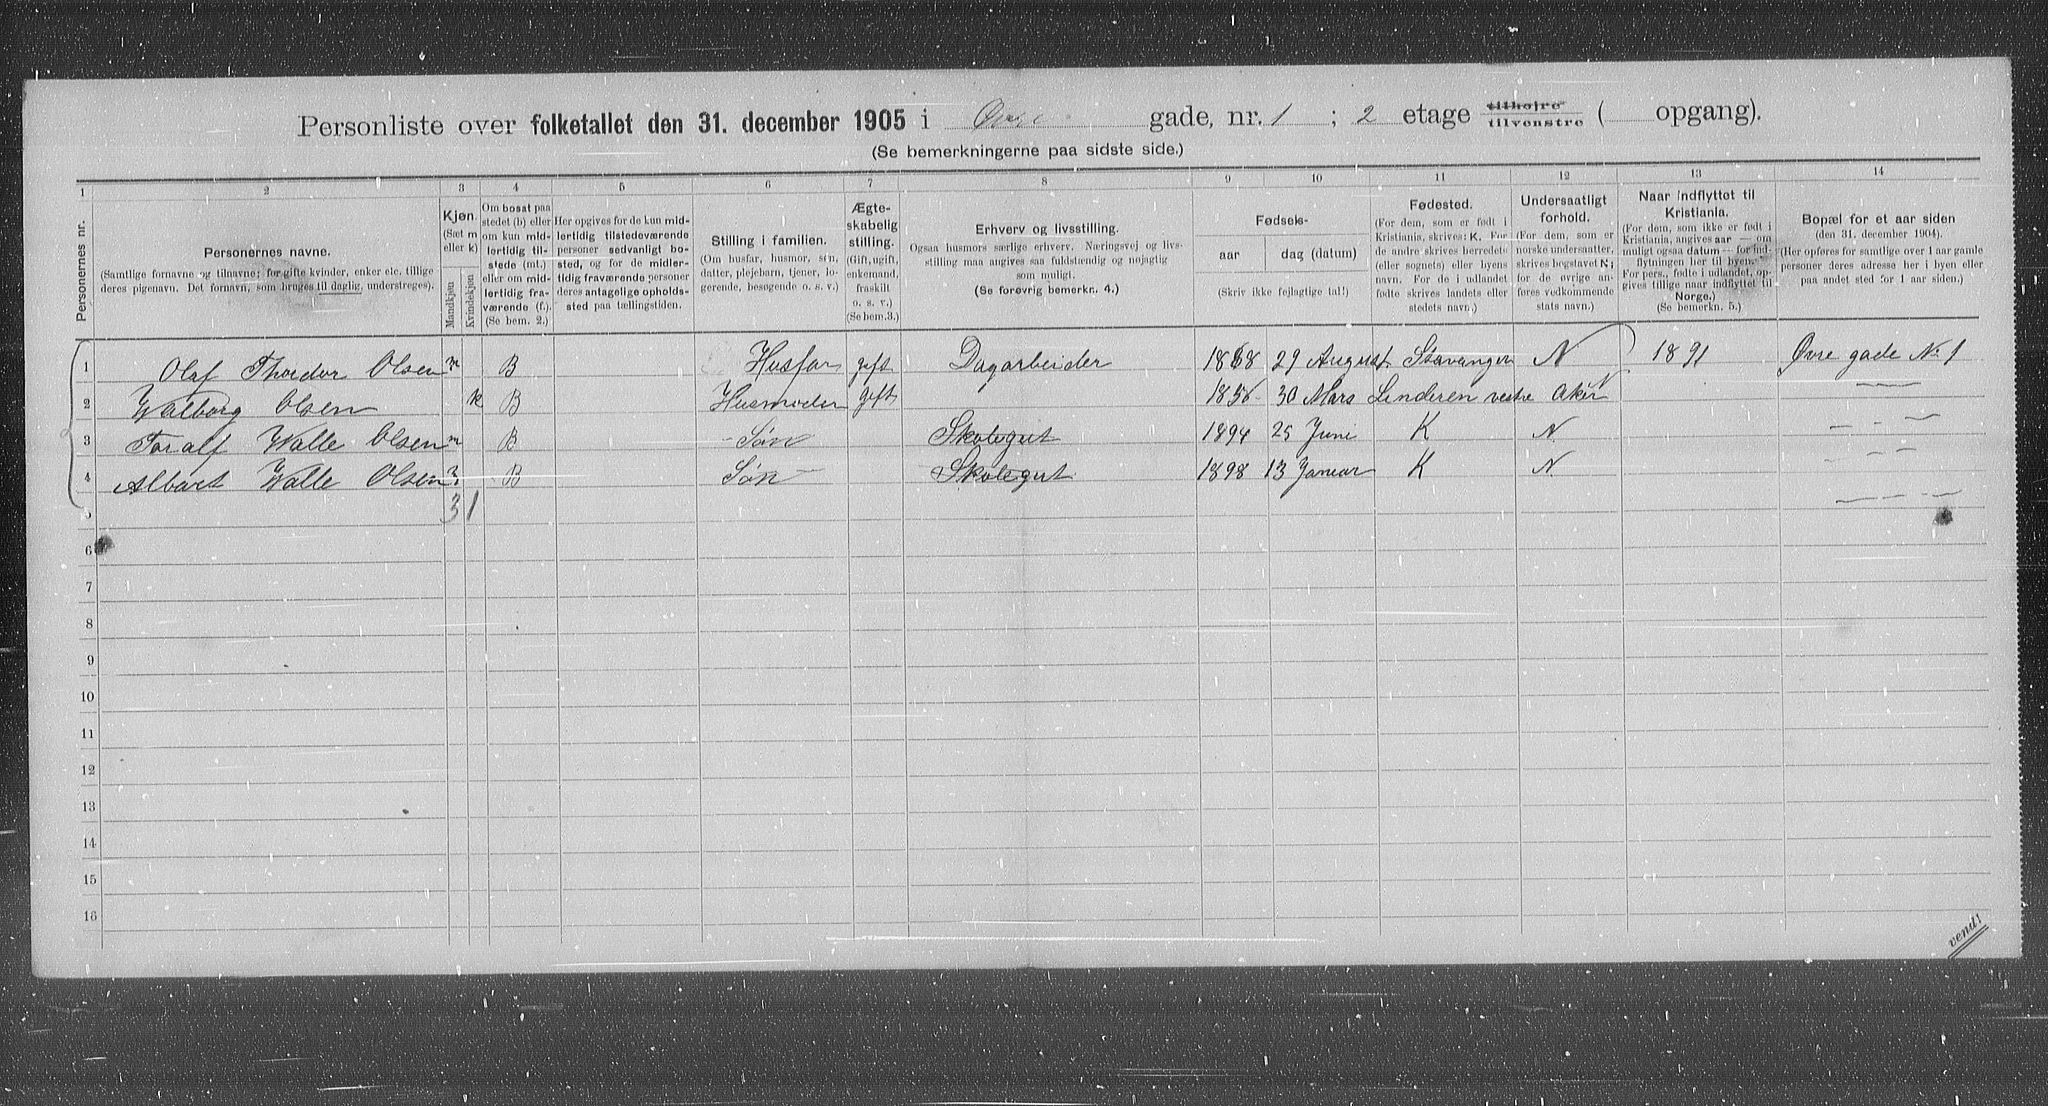 Personliste over folketallet den 31. december 1905 i Øvre gade, nr. 1 ; 2 etage tilhøjre tilvenstre ( opgang).
(Se bemerkningerne paa sidste side.)
1 2 3 4 5 6 7 8 9 10 11 12 13 14
Personernes nr.
Personernes navne.
(Samtlige fornavne og tilnavne; for gifte kvinder, enker etc. tillige
deres pigenavn. Det fornavn, som bruges til daglig, understreges).
Kjøn.
(Sæt m
eller k)
Mandkjøn
Kvindekjøn
Om bosat paa
stedet (b) eller
om kun mid-
lertidig til-
stede (mt.)
eller om mid-
lertidig fra-
værende (f.).
(Se bem. 2.)
Her opgives for de kun mid-
lertidig tilstedeværende
personer sedvanlig bo-
sted, og for de midler-
tidig fraværende personer
deres antagelige opholds-
sted paa tællingstiden.
Stilling i familien.
(Om husfar, husmor, søn,
datter, plejebarn, tjener, lo-
gerende, besøgende o. s. v.)
Ægte-
skabelig
stilling.
(Gift, ugift,
enkemand,
fraskilt
o. s. v.)
(Se bem. 3.)
Erhverv og livsstilling.
Ogsaa husmors særlige erhverv. Næringsvej og livs-
stilling maa angives saa fuldstændig og nøjagtig
som muligt.
(Se forøvrig bemerkn. 4.)
Fødsels-
aar
dag (datum)
(Skriv ikke fejlagtige tal!)
Fødested.
(For dem, som er født i
Kristiania, skrives: K. For
de andre skrives herredets
(eller sognets) eller byens
navn. For de i udlandet
fødte skrives landets eller
stedets navn.)
Undersaatligt
forhold.
(For dem, som er
norske undersaatter,
skrives bogstavet N;
for de øvrige an-
føres vedkommende
stats navn.)
Naar indflyttet til
Kristiania.
(For dem, som ikke er født i
Kristiania, angives aar — om
muligt ogsaa datum — for ind-
flytningen her til byen.
For pers., fødte i udlandet, op-
gives tillige naar indflyttet til
Norge.)
(Se bemerkn. 5.)
Bopæl for et aar siden
(den 31. december 1904).
(Her opføres for samtlige over 1 aar gamle
personer deres adresse her i byen eller
paa andet sted for 1 aar siden.)
1 Olaf Theodor Olsen m B Husfar gift Dagarbeider 1868 29 August Stavanger N 1891 Øvre gade No 1
2 Walborg Olsen k B Husmoder gift 1856 30 Mars Linderen vestre Aker N — —
3 Toralf Walle Olsen m B Søn Skolegut 1894 25 Juni K N — - —
4 Albert Walle Olsen m B Søn Skolegut 1898 13 Januar K N - — —
5 3 1 — — - —
6
7
8
9
10
11
12
13
14
15
16
vend!